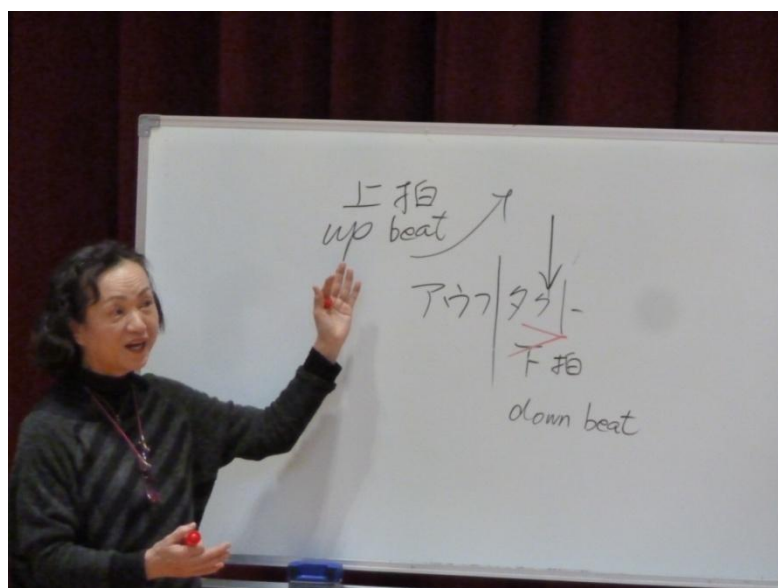 上拍
up beat
アウフ|タクト
下拍
down beat